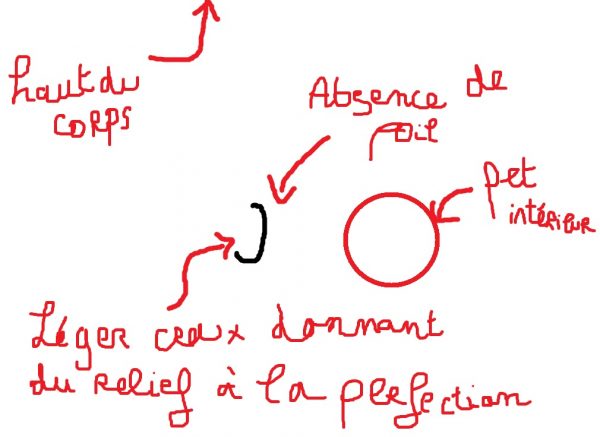 haut du
CORPS
Absence de
poil
pet
intérieur
Léger creux donnant
du relief à la perfection